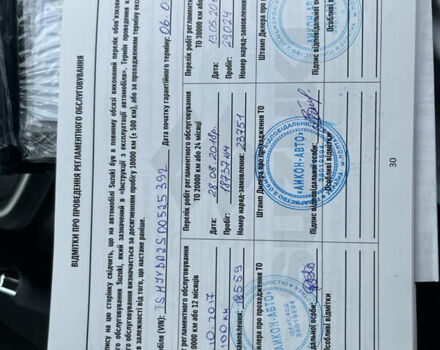 ВІДМІТКИ ПРО ПРОВЕДЕННЯ РЕГЛАМЕНТНОГО ОБСЛУГОВУВАННЯ
пису на цю сторінку свідчить, що на автомобілі Suzuki був в повному обсязі виконаний перелік обов'язкових
го обслуговування Suzuki, який зазначений в «Інструкції з експлуатації автомобіля». Термін проведення
ого обслуговування визначається за досягненням пробігу 10000 км (± 500 км), або за проходженням терміну
в залежності від того, що настане раніше.
мобіля (VIN): TSMJYBA2S00525392 Дата початку гарантійного терміну: 06.0
ентного обслуговування
0000 км або 12 місяців
10.2017
100 км
замовлення: 18559
ілера про проходження ТО
дальної особи:
бисті відмітки
Перелік робіт регламентного обслуговування
ТО 20000 км або 24 місяці
Дата: 28.08.2018р
Пробіг: 18737 км
Номер наряд-замовлення: 23751
Штамп Дилера про проходження ТО
«АЙКОН-АВТО»
Підпис відповідальної особи:
Особливі відмітки
Перелік робіт регламентного
ТО 30000 км або
Дата: 19.06.20
Пробіг: 29024
Номер наряд-замовлення:
Штамп Дилера про
Підпис відповідальної
Особливі
30